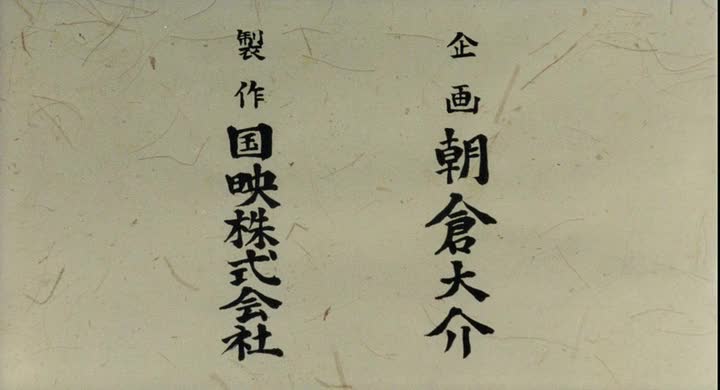 企画 朝倉大介
製作 国映株式会社